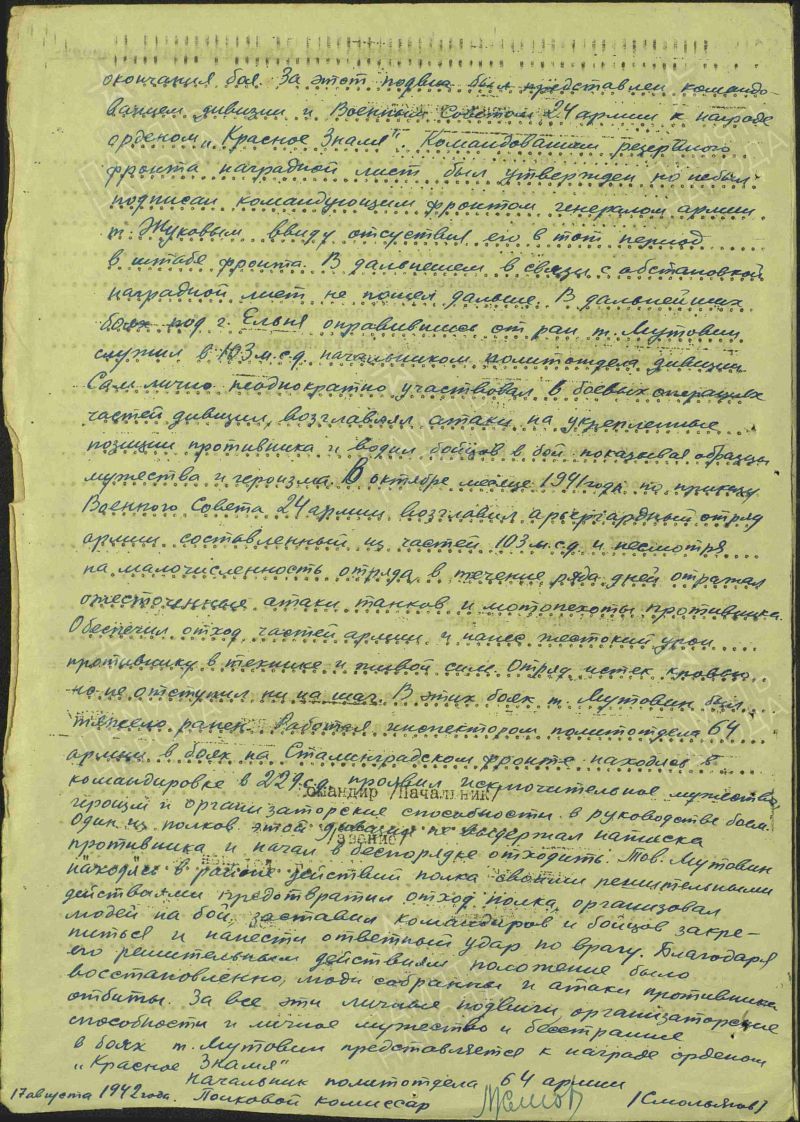 окончания боя. За этот подвиг был представлен командо-
ванием дивизии и Военным Советом 24 армии к награде
орденом „Красное Знамя". Командованием резервного
фронта наградной лист был утвержден но небыл
подписан командующим фронтом генералом армии
т. Жуковым ввиду отсуствия его в тот период
в штабе фронта. В дальнешем в связи с обстановкой
наградной лист не пошел дальше. В дальнейших
боях под г. Ельня оправившись от ран т. Мутовин
служил в 103 м.с.д. начальником политотдела дивизии
Сам лично неоднократно участвовал в боевых операциях
частей дивизии, возглавлял атаки на укрепленные
позиции противника и водил бойцов в бой показывая образцы
мужества и героизма. В октябре месяце 1941 года по приказу
Военного Совета 24 армии возглавил арьергардный отряд
армии составленный из частей 103 м.с.д. и несмотря
на малочисленность отряда в течение ряда дней отражал
ожесточенные атаки танков и мотопехоты противника.
Обеспечил отход частей армии и нанес жестокий урон
противнику в технике и живой силе. Отряд истек кровью
но не отступил ни на шаг. В этих боях т. Мутовин был
тяжело ранен. Работая инспектором политотдела 64
армии в боях на Сталинградском фронте находясь в
командировке в 229 с.д. проявил исключительное мужество
Командир /Начальник/
героизм и организаторские способности в руководстве боем.
Один из полков этой дивизии не выдержал натиска
/звание/
противника и начал в беспорядке отходить. Тов. Мутовин
находясь в районе действий полка своими решительными
действиями предотвратил отход полка, организовал
людей на бой, заставил командиров и бойцов закре-
питься и нанести ответный удар по врагу. Благодаря
его решительным действиям положение было
восстановленно, люди собранны и атаки противника
отбиты. За все эти личные подвиги, организаторские
способности и личное мужество и бесстрашие
в боях т. Мутовин представляется к награде орденом
„Красное Знамя"
Начальник политотдела 64 армии
17 августа 1942 года. Полковой комиссар /Смольянов/